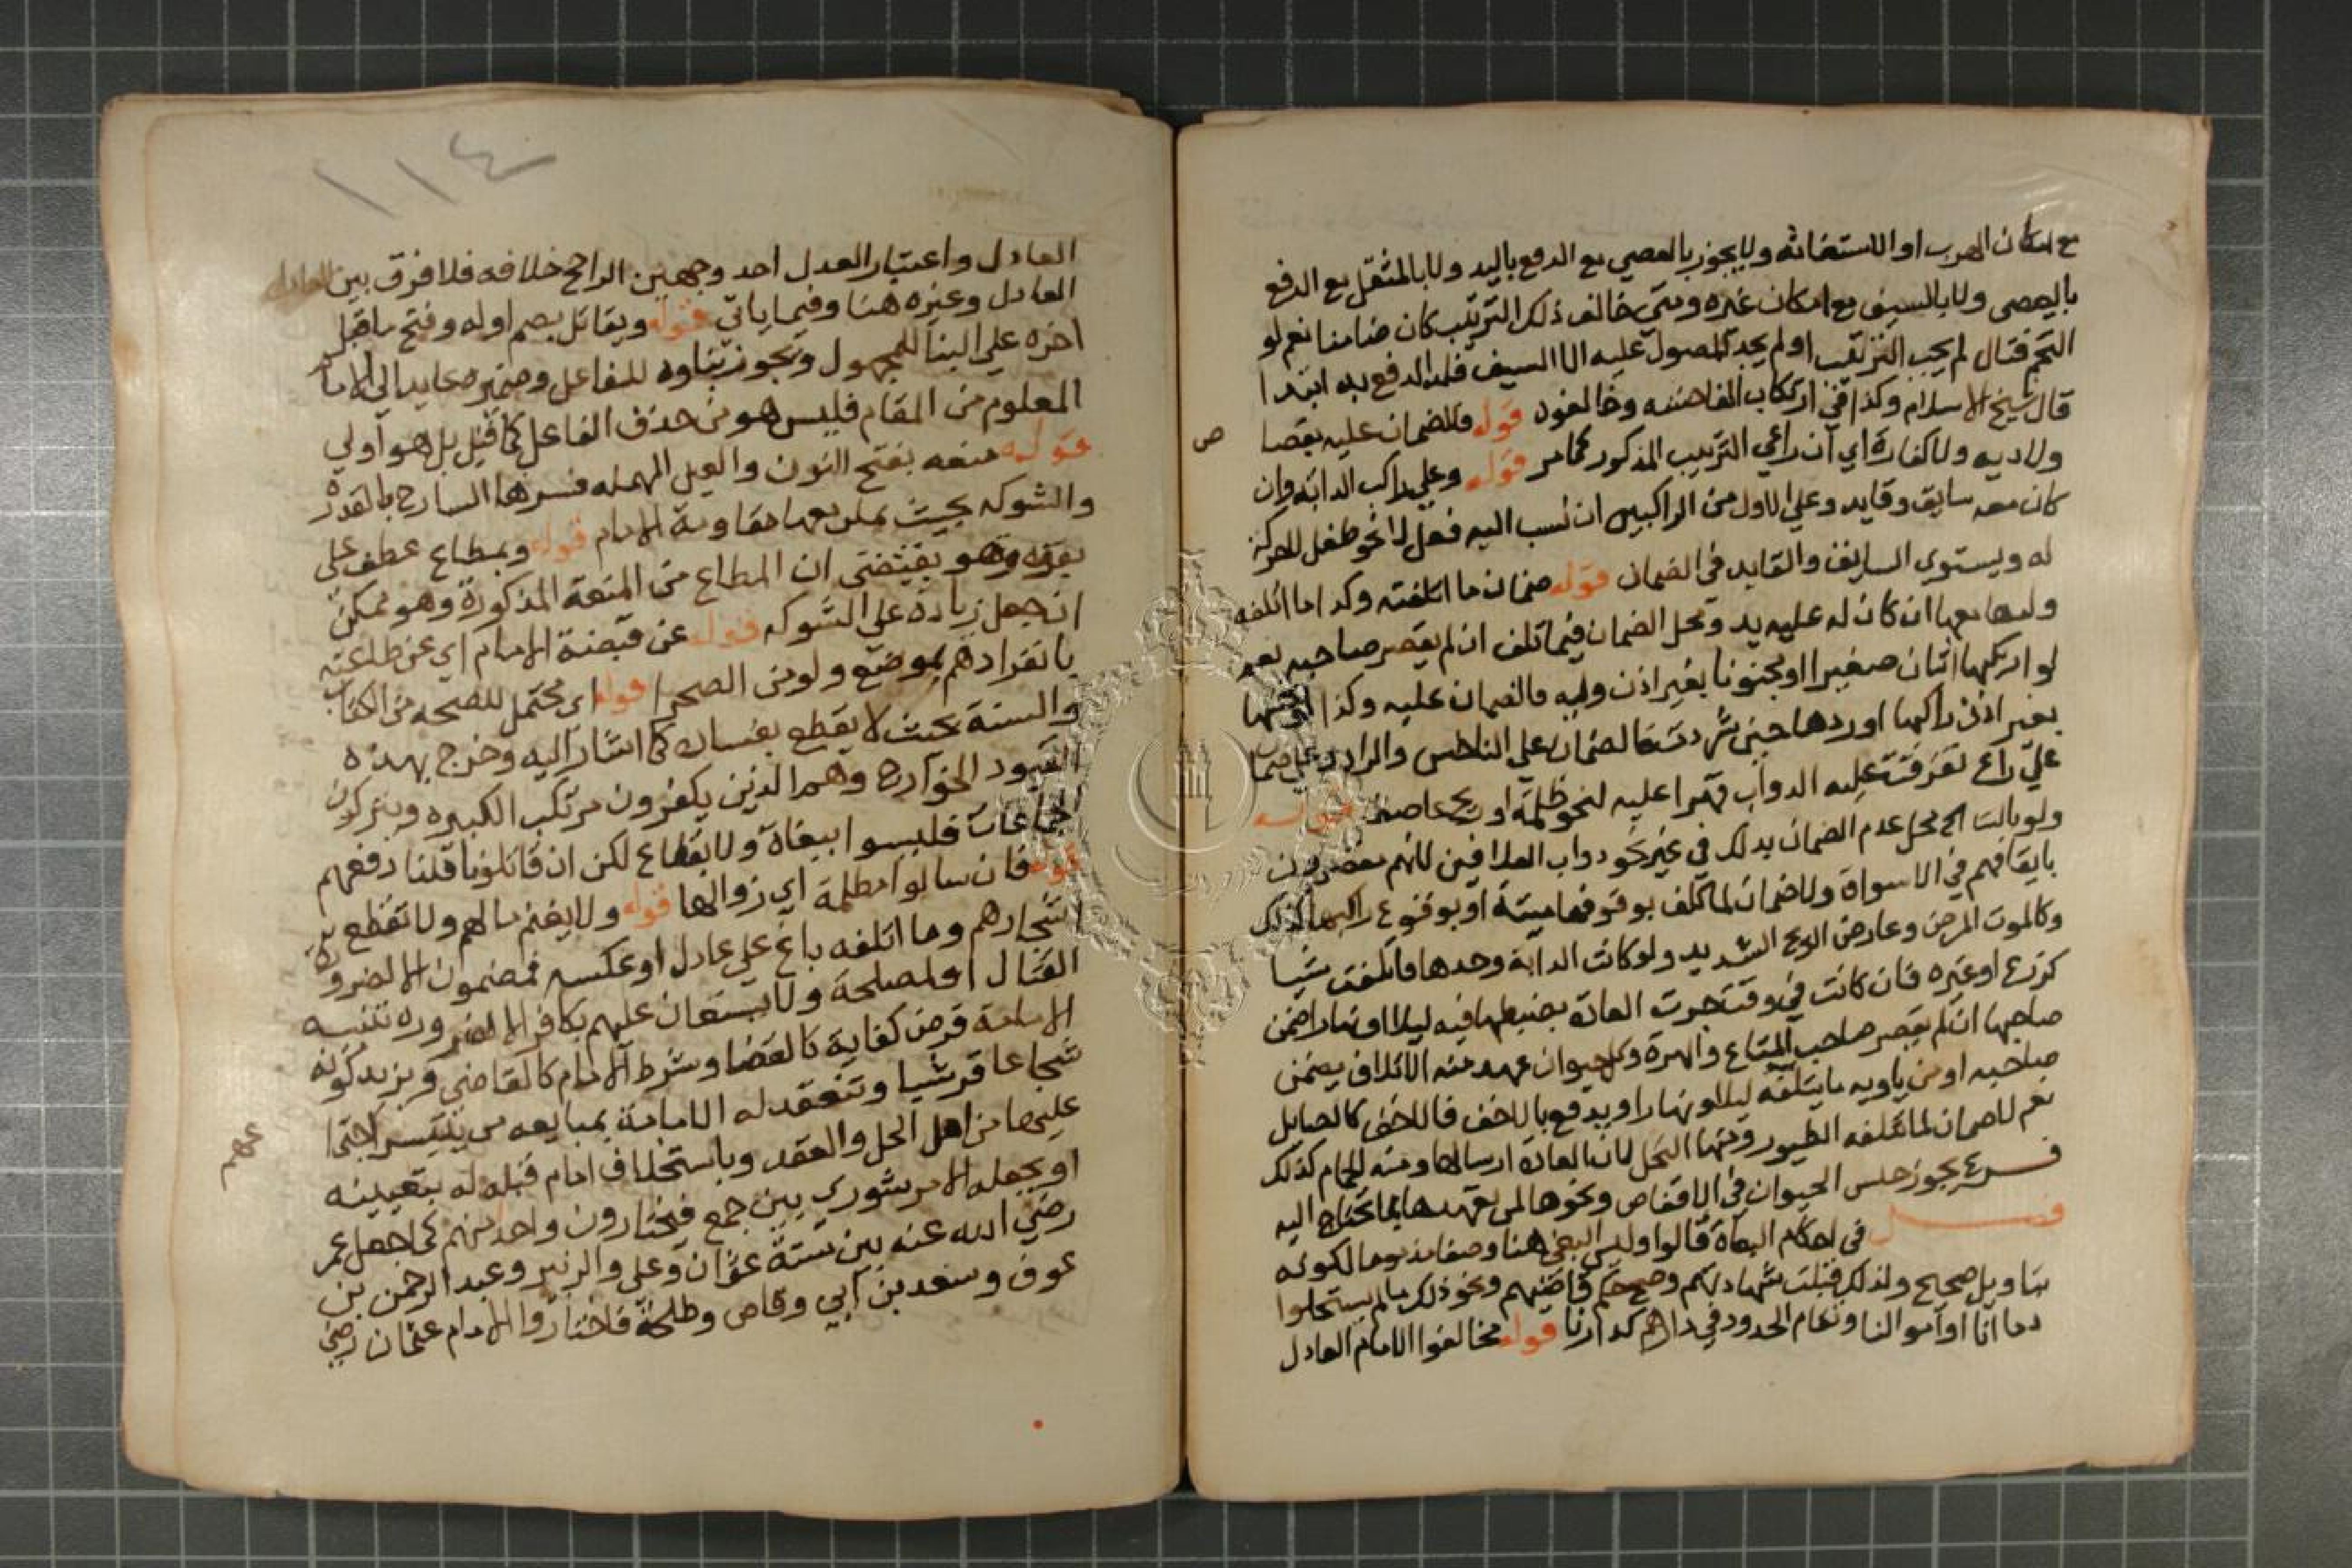 مع امكان الهرب او الاستغاثه ولا يجوز بالعصي مع الدفع باليد ولا بالمثقل مع الدفع
بالعصى ولا بالسيف مع امكان غيره ومتى خالف ذلك الترتيب كان ضامنا نعم لو
التحم قتال لم يجب الترتيب او لم يجد المصول عليه الا السيف فله الدفع به ابتدا
قال شيخ الاسلام وكذا في ارتكاب الفاحشه وخالفوه قوله فلا ضمان عليه بقصا
ص
ولا ديه ولا كفارة اي ان راعي الترتيب المذكور كما مر قوله وعلي راكب الدابة وان
كان معه سايق وقايد وعلي الاول من الراكبين ان نسب اليه فعل لا نحو طفل لا حركة
له ويستوي السايق والقايد في الضمان قوله ضمان ما اتلفته وكذا ما اتلفه
ولدها معها ان كان له عليه يد ومحل الضمان فيما تلف ان لم يقصر صاحبه نعم
لو اركبها انسان صغيرا او مجنونا بغير اذن وليه فالضمان عليه وكذا لو نخسها
بغير اذن راكبها او ردها حين شردت فالضمان علي الناخس والراد ولا ضمان
علي راع تفرقت عليه الدواب قهرا عليه لنحو ظلمة او ريح عاصف قوله
ولو بالت الخ محل عدم الضمان بذلك في غير نحو دواب العلافين لانهم مقصرون
بايقافهم في الاسواق ولا ضمان لما تلف بوقوفها ميتة او بوقوع راكبها كذلك
وكالموت المرض وعارض الريح الشديد ولو كانت الدابة وحدها فاتلفت شيا
كزرع او غيره فان كانت في وقت جرت العادة بضبطها فيه ليلا او نهارا ضمن
صاحبها ان لم يقصر صاحب المتاع والهرة وكل حيوان عهد منه الاتلاف يضمن
صاحبه او من ياويه ما يتلفه ليلا او نهارا ويدفع بالاخف فالاخف كالصايل
نعم لا ضمان لما تتلفه الطيور ومنها النحل لان العادة ارسالها ومنه الحمام كذلك
فرع يجوز حبس الحيوان في الاقفاص ونحوها لمن تعهدها بما تحتاج اليه
فصل في احكام البغاة قالوا وليس البغي هنا وصفا مذموما لكونه
بتاويل صحيح ولذلك قبلت شهادتهم وصح حكم قاضيهم ونحو ذلك ما لم يستحلوا
دمانا او اموالنا وتقام الحدود في دارهم كدارنا قوله مخالفوا الامام العادل
١١٤
العادل واعتبار العدل احد وجهين الراجح خلافه فلا فرق بين العادل
العادل وغيره هنا وفيما ياتي قوله ويقاتل بضم اوله وفتح ما قبل
اخره علي البنا للمجهول ويجوز بناوه للفاعل وضميره عايد الي الامام
المعلوم من المقام فليس هو من حذف الفاعل كما قيل بل هو اولي
قوله منعه بفتح النون والعين المهمله فسرها الشارح بالقوة
والشوكه بحيث يمكن معها مقاومة الامام قوله وبمطاع عطف علي
بقوة وهو يقتضي ان المطاع من المنعة المذكورة وهو ممكن
ان جعل زيادة علي الشوكه قوله عن قبضة الامام اي عن طاعته
بانفرادهم بموضع ولو من الصحرا قوله اي محتمل للصحه من الكتاب
والسنة بحيث لا يقطع بفساده كما اشار اليه وخرج بهذه
القيود الخوارج وهم الذين يكفرون مرتكب الكبيره ويتركون
الجماعات فليسوا ببغاة ولا بقطاع لكن ان قاتلونا قلنا دفعهم
قوله فان سالوا مظلمة اي زوالها قوله ولا يغنم مالهم ولا تقطع
اشجارهم وما اتلفه باغ علي عادل او عكسه فمضمون الا لضرورة
القتال او لمصلحة ولا يستعان عليهم بكافر الا لضرورة تنبيه
الامامة فرض كفاية كالقضا وشرط الامام كالقاضي ويزيد كونه
شجاعا قرشيا وتنعقد له الامامة بمبايعه من يتيسر اجتما
عهم
عليها من اهل الحل والعقد وباستخلاف امام قبله له بتعيينه
او بجعله الامر شوري بين جمع فيختارون واحدا منهم كما جعل عمر
رضي الله عنه بين ستة عثمان وعلي والزبير وعبد الرحمن بن
عوف وسعد بن ابي وقاص وطلحة فاختاروا الامام عثمان رضي